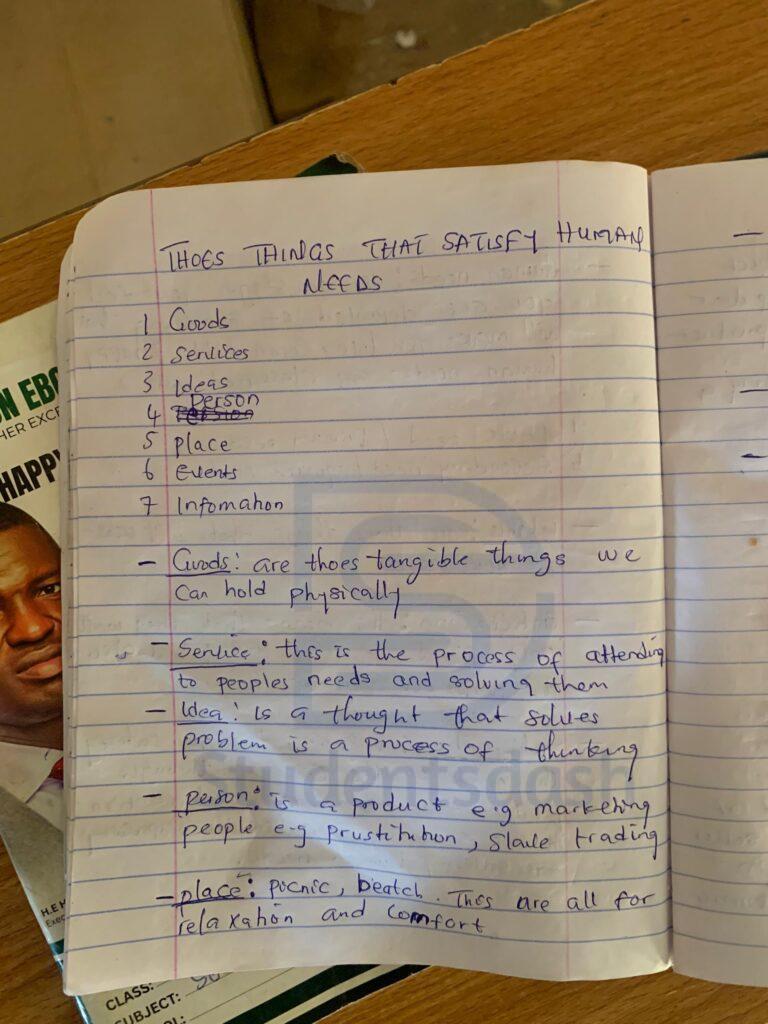 THOES THINGS THAT SATISFY HUMAN
NEEDS
1 Goods
2 Services
3 Ideas
4 Person
5 place
6 events
7 Infomation
- Goods: are thoes tangible things we
can hold physically
- Service: this is the process of attending
to peoples needs and solving them
- Idea: is a thought that solves
problem is a process of thinking
- person: is a product e.g marketing
people e-g prustitution, Slave trading
- place: picnic, beatch. This are all for
relaxation and comfort
Studentsdash
N EBO
HER EXCE
HAPPY
H.E H
Exec
CLASS:
SUBJECT: